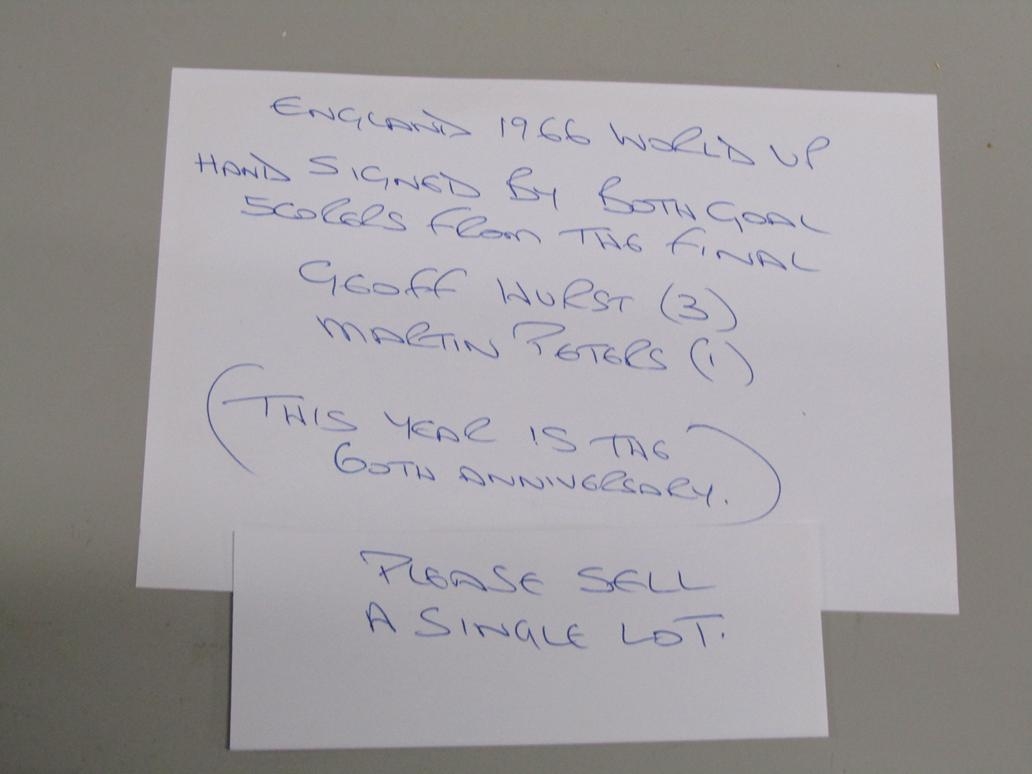 ENGLAND 1966 WORLD UP
HAND SIGNED BY BOTH GOAL
SCORERS FROM THE FINAL
GEOFF HURST (3)
MARTIN PETERS (1)
(THIS YEAR IS THE
60TH ANNIVERSARY.)
PLEASE SELL
A SINGLE LOT.